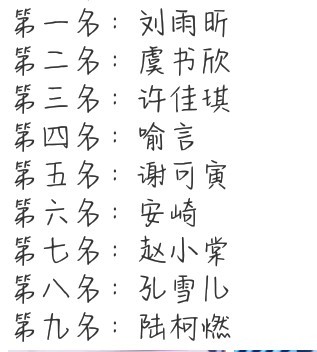 第一名：刘雨昕
第二名：虞书欣
第三名：许佳琪
第四名：喻言
第五名：谢可寅
第六名：安崎
第七名：赵小棠
第八名：孔雪儿
第九名：陆柯燃